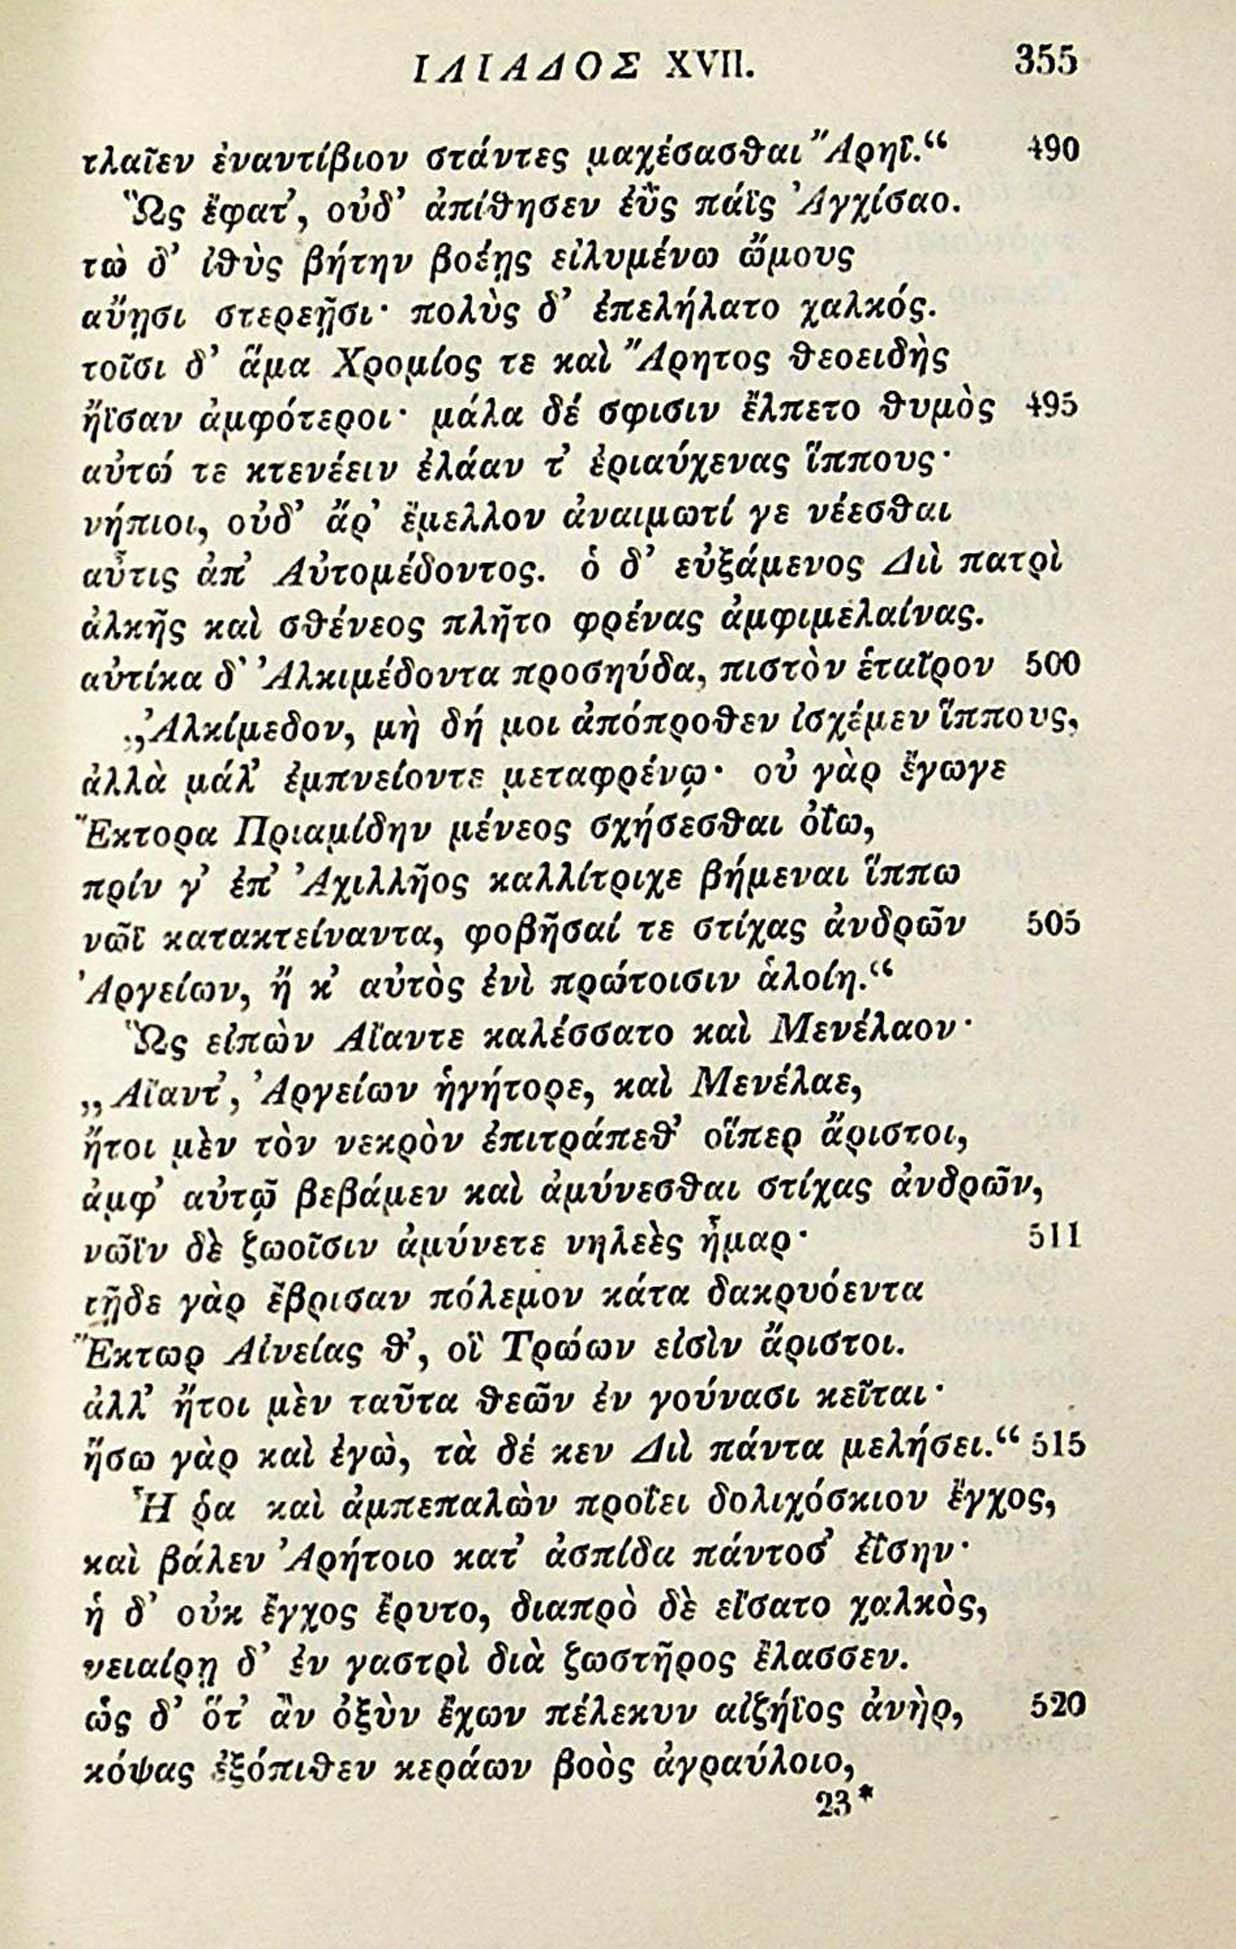 ΙΛΙΑΔΟΣ XVII. 355
τλαῖεν ἐναντίβιον στάντες μαχέσασθαι Ἄρηϊ.“ 490
Ὣς ἔφατ’, οὐδ’ ἀπίθησεν ἐῢς πάϊς Ἀγχίσαο.
τὼ δ’ ἰθὺς βήτην βοέῃς εἰλυμένω ὤμους
αὔῃσι στερεῇσι· πολὺς δ’ ἐπελήλατο χαλκός.
τοῖσι δ’ ἅμα Χρομίος τε καὶ Ἄρητος θεοειδὴς
ἤϊσαν ἀμφότεροι· μάλα δέ σφισιν ἔλπετο θυμὸς 495
αὐτώ τε κτενέειν ἐλάαν τ’ ἐριαύχενας ἵππους·
νήπιοι, οὐδ’ ἄρ’ ἔμελλον ἀναιμωτί γε νέεσθαι
αὖτις ἀπ’ Αὐτομέδοντος. ὁ δ’ εὐξάμενος Διὶ πατρὶ
ἀλκῆς καὶ σθένεος πλῆτο φρένας ἀμφιμελαίνας.
αὐτίκα δ’ Ἀλκιμέδοντα προσηύδα, πιστὸν ἑταῖρον 500
„Ἀλκίμεδον, μὴ δή μοι ἀπόπροθεν ἰσχέμεν ἵππους,
ἀλλὰ μάλ’ ἐμπνείοντε μεταφρένῳ· οὐ γὰρ ἔγωγε
Ἕκτορα Πριαμίδην μένεος σχήσεσθαι ὀΐω,
πρίν γ’ ἐπ’ Ἀχιλλῆος καλλίτριχε βήμεναι ἵππω
νῶϊ κατακτείναντα, φοβῆσαί τε στίχας ἀνδρῶν 505
Ἀργείων, ἤ κ’ αὐτὸς ἐνὶ πρώτοισιν ἁλοίη.“
Ὣς εἰπὼν Αἴαντε καλέσσατο καὶ Μενέλαον·
„Αἴαντ’, Ἀργείων ἡγήτορε, καὶ Μενέλαε,
ἤτοι μὲν τὸν νεκρὸν ἐπιτράπεθ’ οἵπερ ἄριστοι,
ἀμφ’ αὐτῷ βεβάμεν καὶ ἀμύνεσθαι στίχας ἀνδρῶν,
νῶϊν δὲ ζωοῖσιν ἀμύνετε νηλεὲς ἦμαρ· 511
τῇδε γὰρ ἔβρισαν πόλεμον κάτα δακρυόεντα
Ἕκτωρ Αἰνείας θ’, οἳ Τρώων εἰσὶν ἄριστοι.
ἀλλ’ ἤτοι μὲν ταῦτα θεῶν ἐν γούνασι κεῖται·
ἥσω γὰρ καὶ ἐγώ, τὰ δέ κεν Διὶ πάντα μελήσει.“ 515
Ἦ ῥα καὶ ἀμπεπαλὼν προΐει δολιχόσκιον ἔγχος,
καὶ βάλεν Ἀρήτοιο κατ’ ἀσπίδα πάντοσ’ ἐΐσην·
ἡ δ’ οὐκ ἔγχος ἔρυτο, διαπρὸ δὲ εἴσατο χαλκὸς,
νειαίρῃ δ’ ἐν γαστρὶ διὰ ζωστῆρος ἔλασσεν.
ὡς δ’ ὅτ’ ἂν ὀξὺν ἔχων πέλεκυν αἰζήϊος ἀνὴρ, 520
κόψας ἐξόπιθεν κεράων βοὸς ἀγραύλοιο,
23*